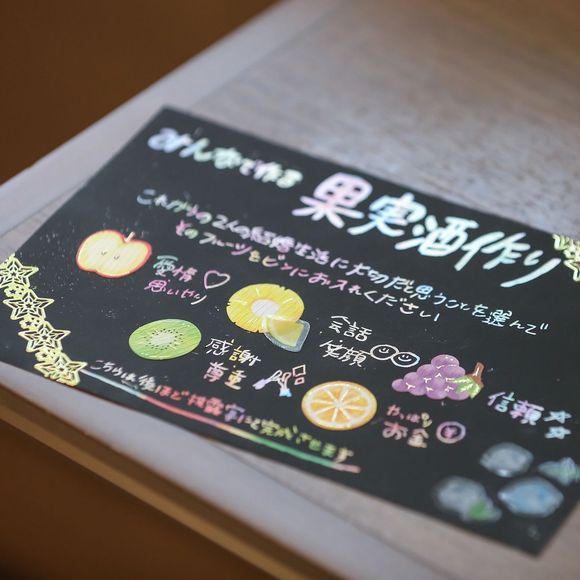 みんなで作る
果実酒作り
これからの2人の結婚生活に大切だと思うことを選んで
そのフルーツをビンにお入れください
愛情♡
思いやり
会話
笑顔
感謝
尊重
信頼☆☆
やっぱり
お金
こちらは後ほど披露宴にて完成させます